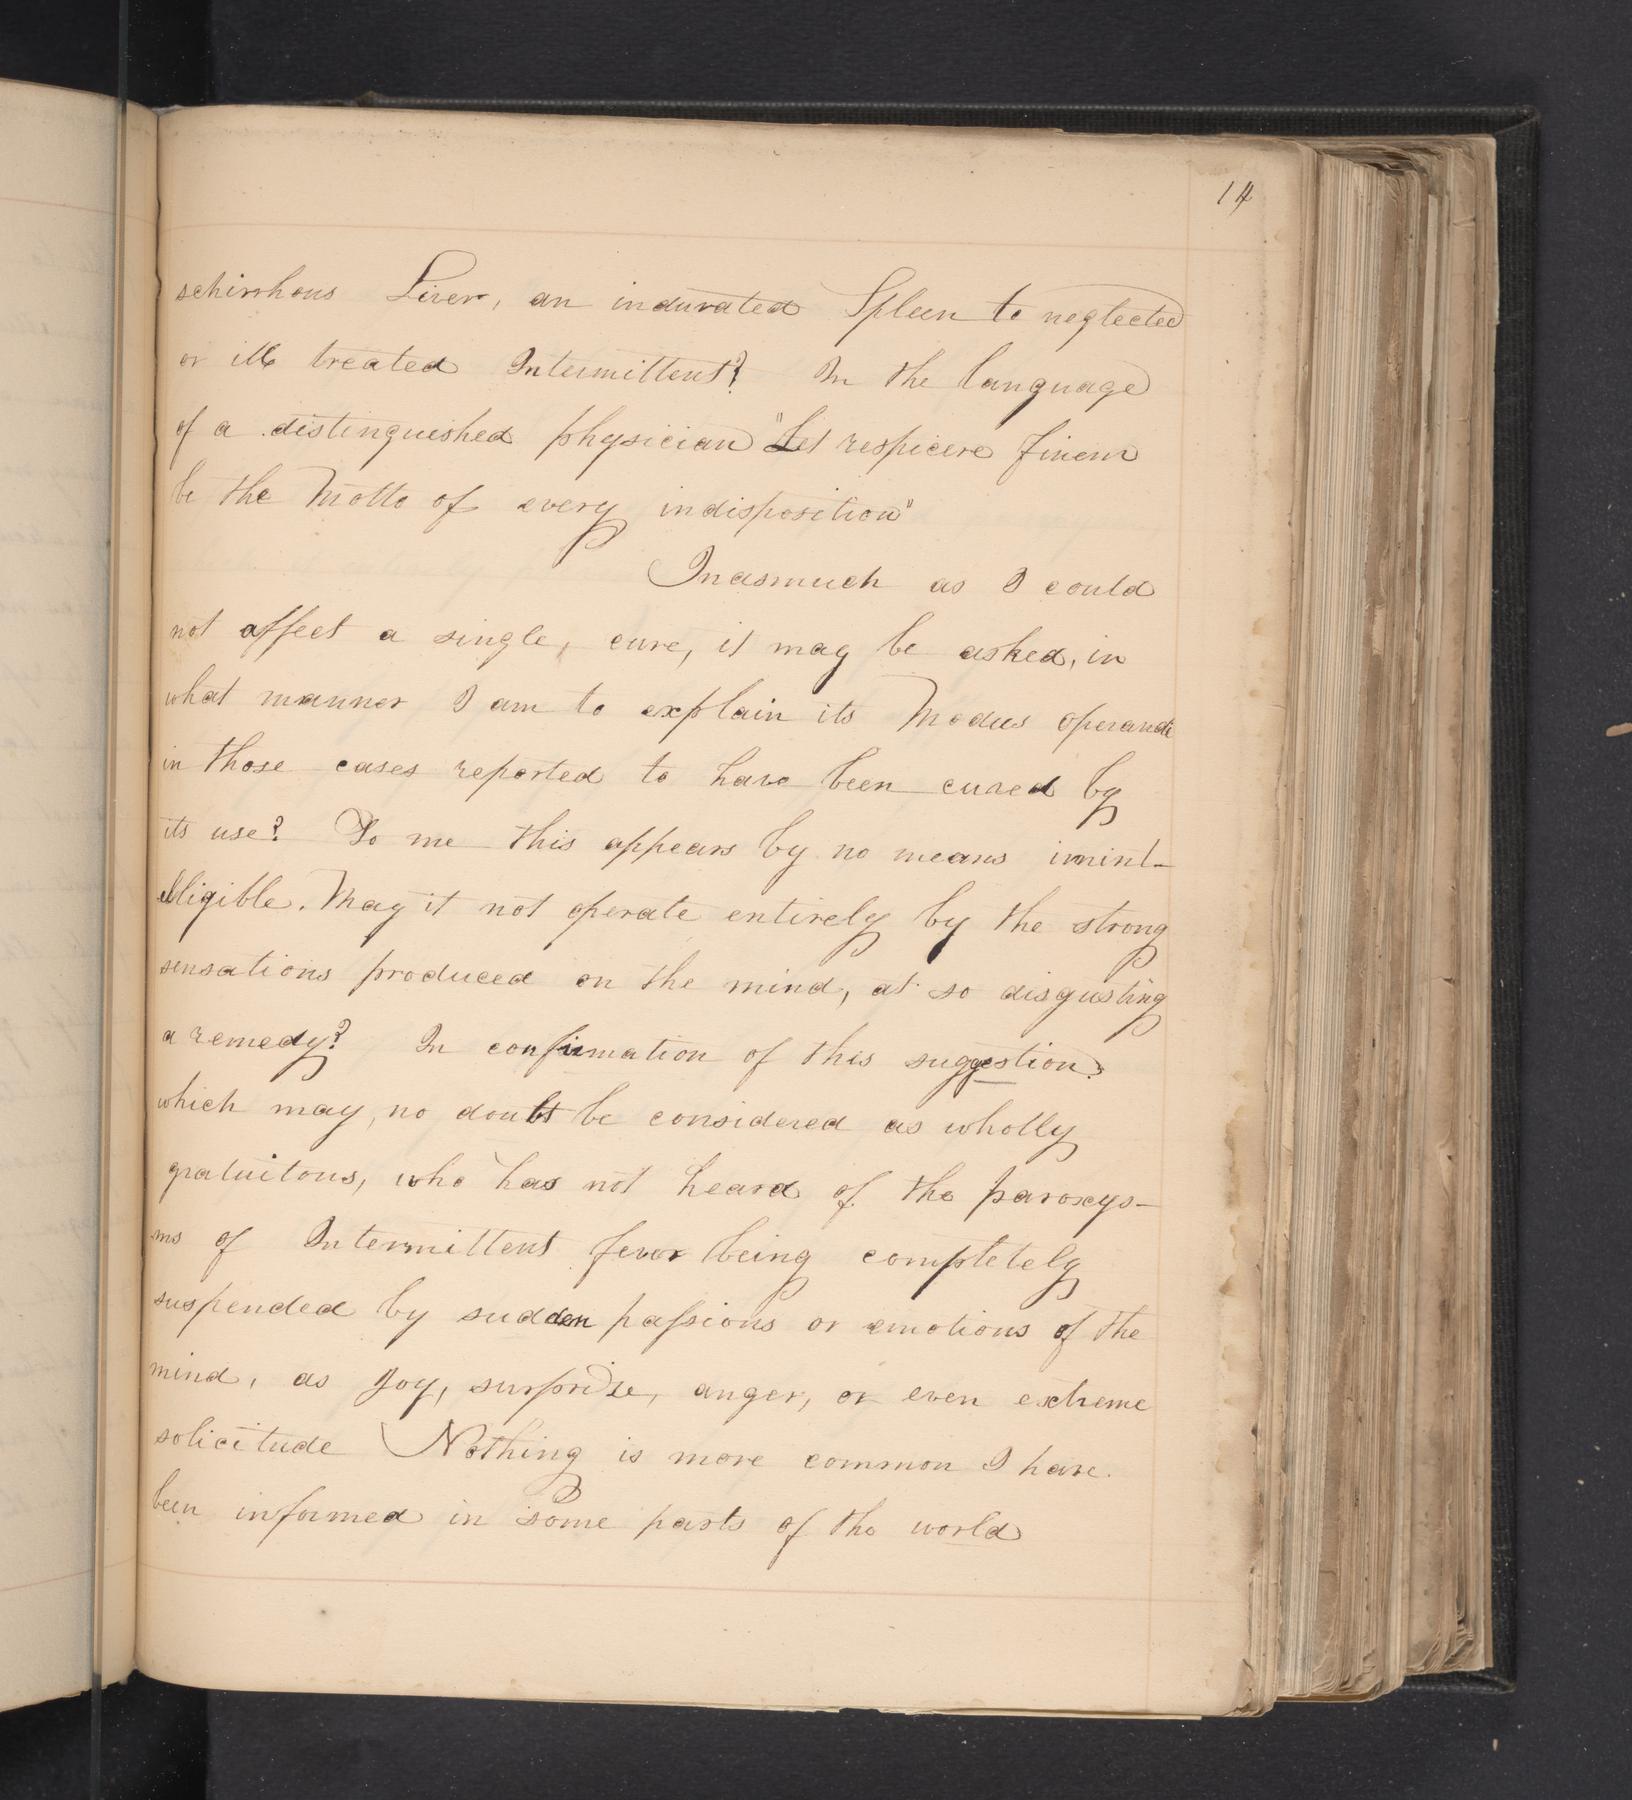 14
schirrhous Liver, an indurated Spleen to neglected
or ill treated Intermittent? In the language
of a distinguished physician "Let respicere finem
be the Motto of every indisposition"
Inasmuch as I could
not affect a single, cure, it may be asked, in
what manner I am to explain its Modus operandi
in those cases reported to have been cured by
its use? To me this appears by no means inint-
elligible. May it not operate entirely by the strong
sensations produced on the mind, at so disgusting
a remedy? In confirmation of this suggestion,
which may, no doubt be considered as wholly
gratuitous, who has not heard of the paroxys-
ms of Intermittent fever being completely
suspended by sudden passions or emotions of the
mind, as Joy, surprize, anger, or even extreme
solicitude Nothing is more common I have
been informed in some parts of the world